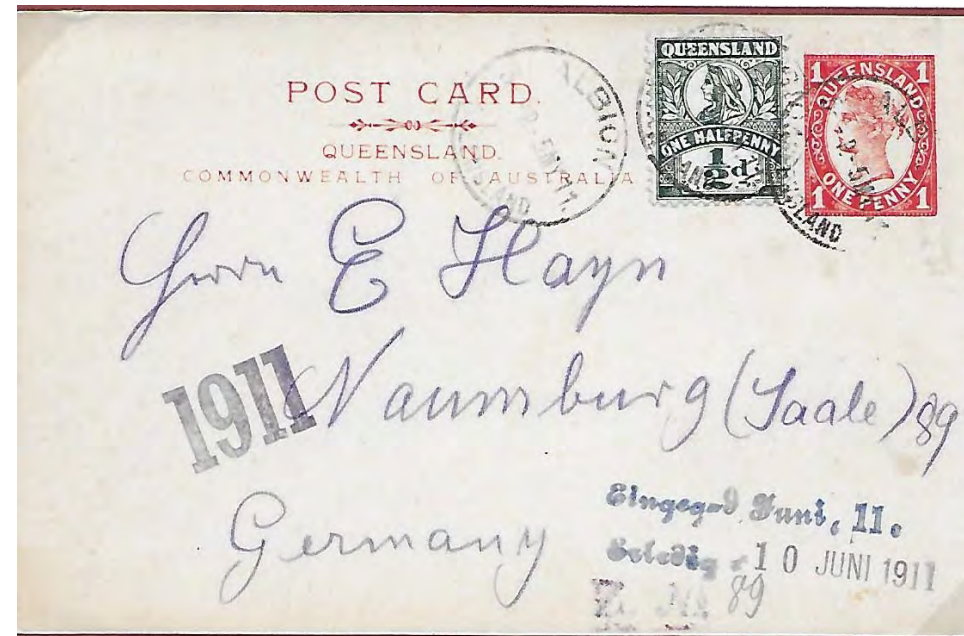 POST CARD.
QUEENSLAND.
COMMONWEALTH OF AUSTRALIA
ALBION
5MY 11.
QUEENSLAND
ONE HALFPENNY
½d
QUEENSLAND
1 1
ONE PENNY
1 1
Herrn E Hayn
1911
Naumburg (Saale) 89
Germany
Eingeg. Juni. 11.
Erledig 10 JUNI 1911
89